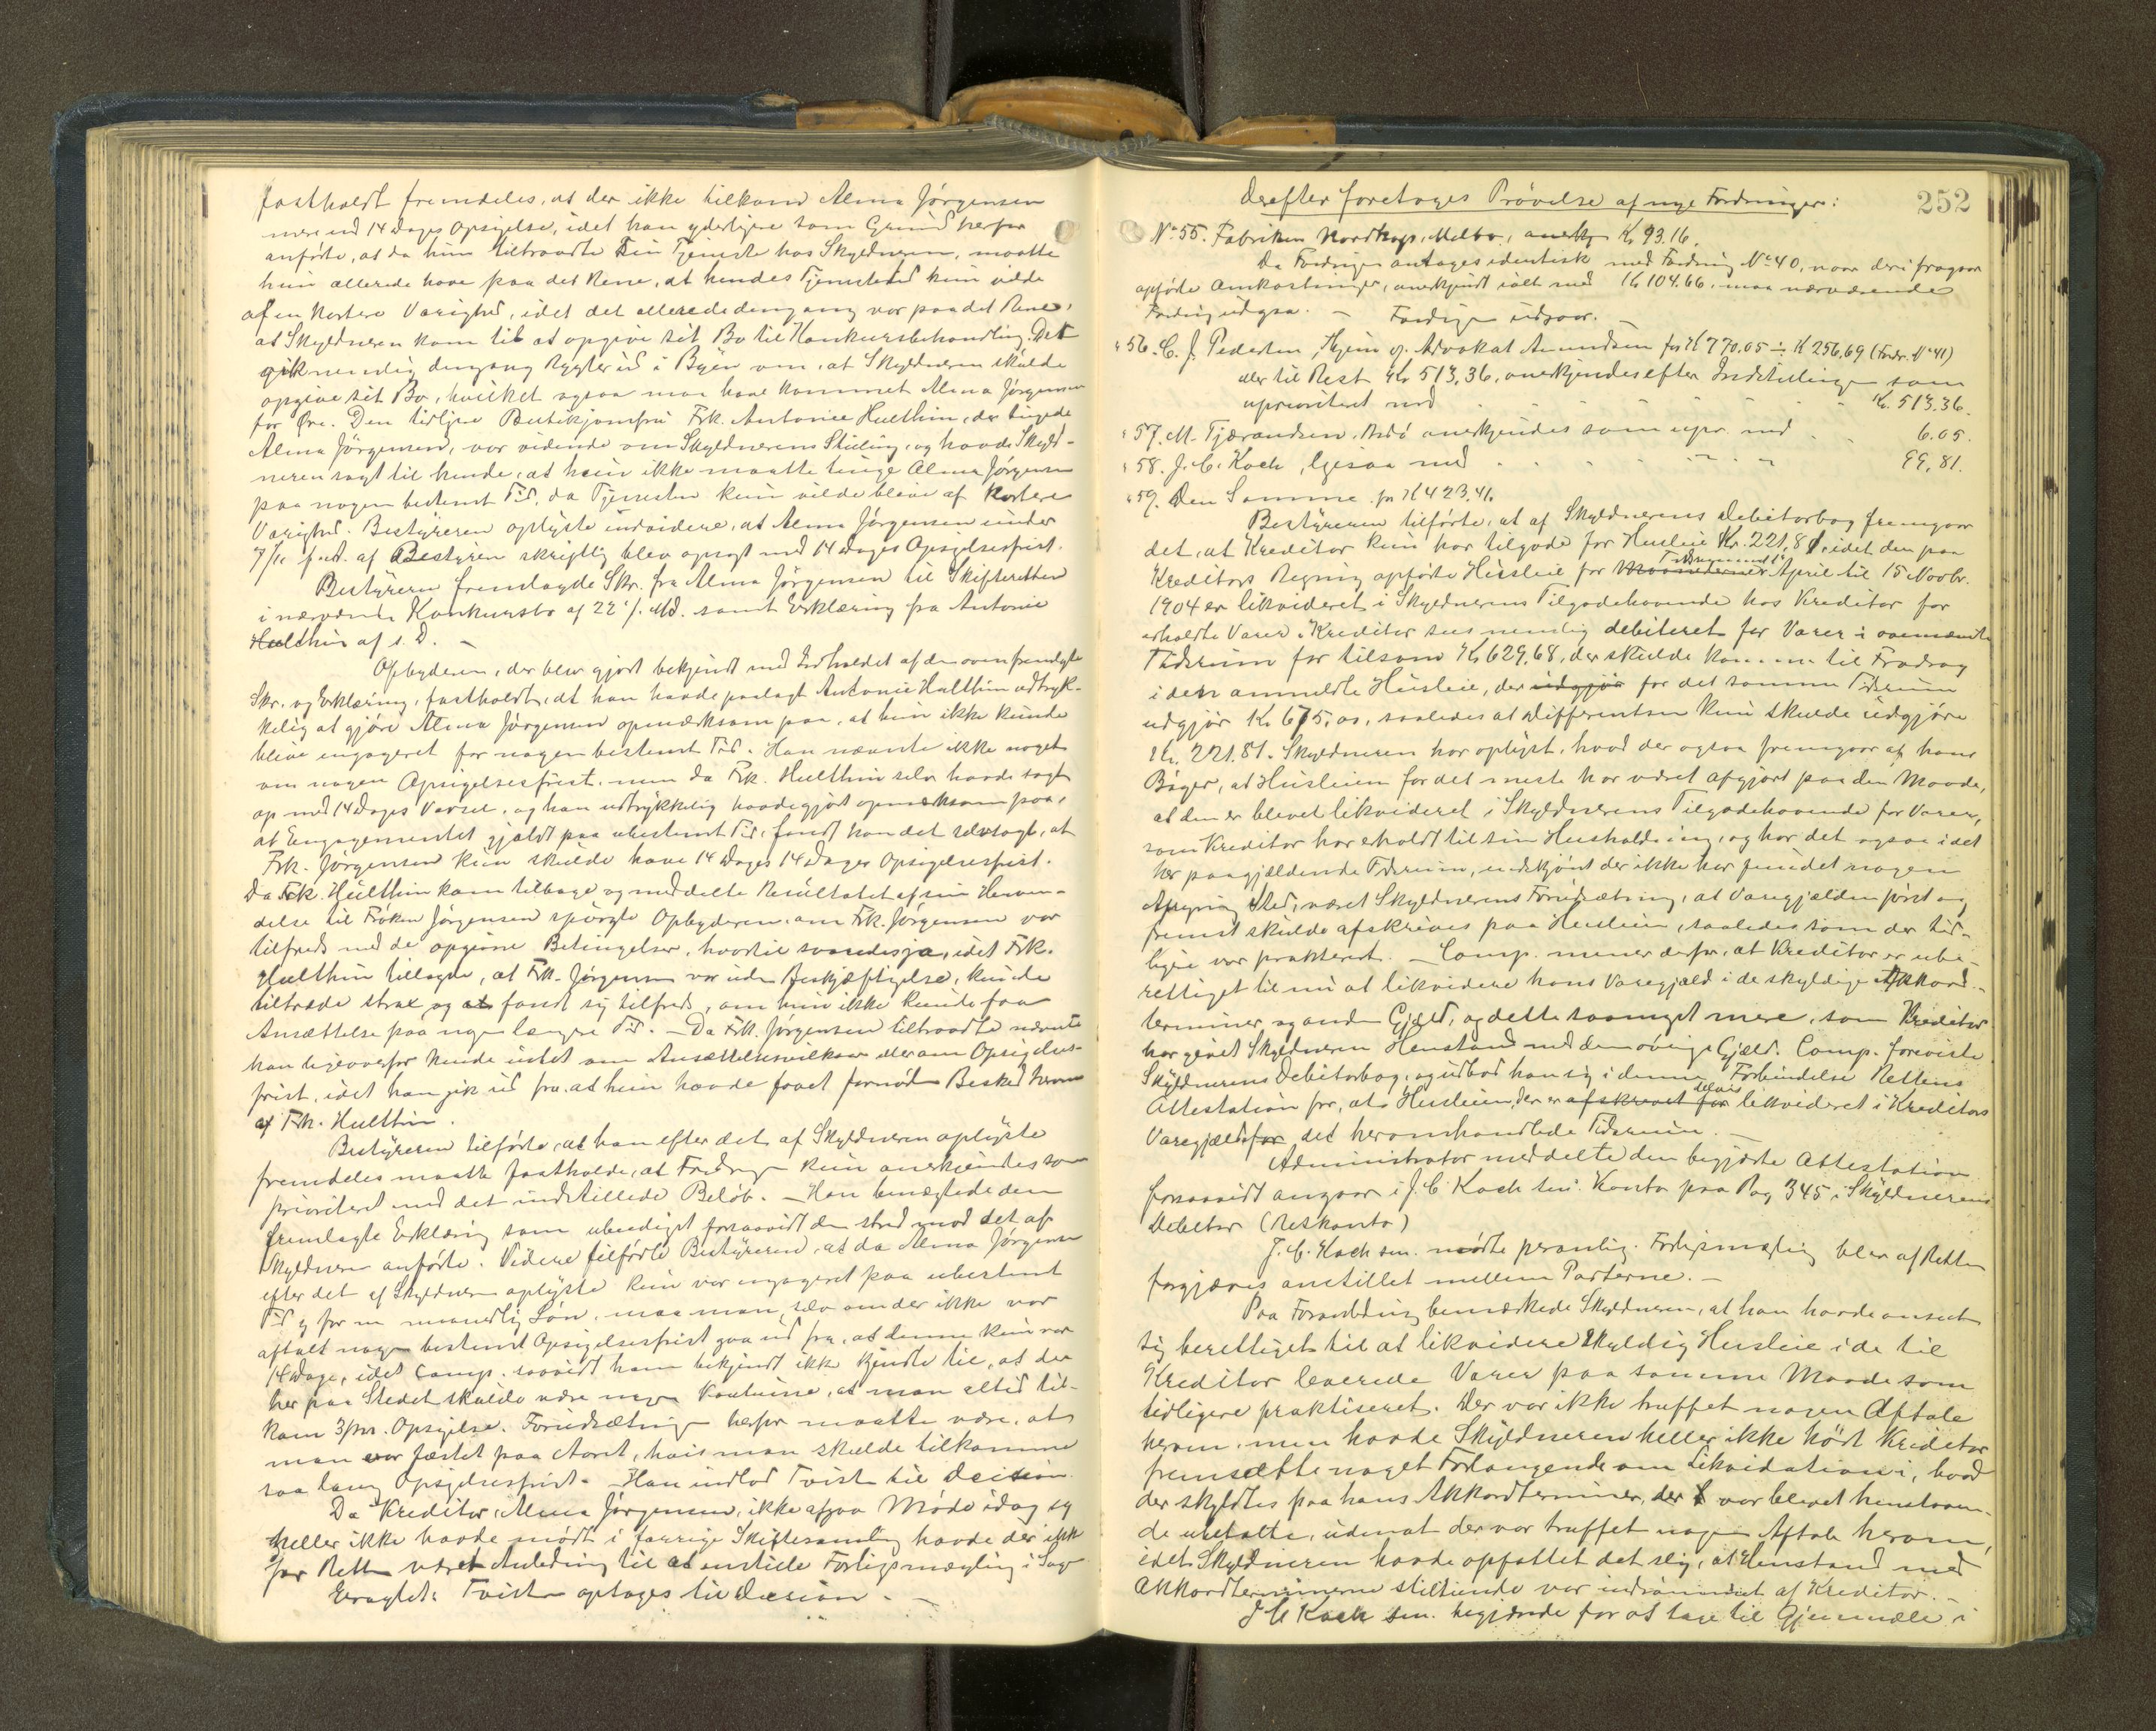 fastholdt fremdeles, at der ikke tilkom Alma Jørgensen
mere end 14 Dages Opsigelse, idet han yderligere som Grund herfor
anførte, at da hun tiltraadte sin Tjeneste hos Skyldneren, maatte
hun allerede have paa det Rene, at hendes Tjenestetid kun vilde
af en kortere Varighed, idet det allerede dengang var paa det Rene,
at Skyldneren kom til at opgive sit Bo til Konkursbehandling. Det
gik nemlig dengang Rygter ud i Byen om, at Skyldneren skulde
opgive sit Bo, hvilket ogsaa maa have kommet Alma Jørgensen
for Øre. Den tidligere Butikjomfru Frk. Antonie Hulthin, der tingede
Alma Jørgensen, var vidende om Skyldnerens Stilling, og havde Skyld-
neren sagt til hende, at hun ikke maatte tinge Alma Jørgensen
paa nogen bestemt Tid, da Tjenesten kun vilde blive af kortere
Varighed. Bestyreren oplyste endvidere, at Alma Jørgensen under
7/11 f. A. af Bestyren skriftlig blev opsagt med 14 Dages Opsigelsesfrist.
Bestyreren fremlagde Skr. fra Alma Jørgensen til Skifteretten
i nærværende Konkursbo af 22 d. Md. samt Erklæring fra Antonie
Hulthin af s. D. –
Opbyderen, der blev gjort bekjendt med Indholdet af den ovenfremlagte
Skr. og Erklæring, fastholdt, at han havde paalagt Antonie Hulthin udtryk-
kelig at gjøre Alma Jørgensen opmærksom paa, at hun ikke kunde
blive engageret for nogen bestemt Tid. Han nævnte ikke noget
om nogen Opsigelsesfrist, men da Frk. Hulthin selv havde sagt
op med 14 Dages Varsel, og han udtrykkelig havde gjort opmærksom paa,
at Engagementet gjaldt paa ubestemt Tid, fandt han det selvsagt, at
Frk. Jørgensen kun skulde have 14 Dages 14 Dages Opsigelsesfrist.
Da Frk. Hulthin kom tilbage og meddelte Resultatet af sin Henven-
delse til Frøken Jørgensen spurgte Opbyderen, om Frk. Jørgensen var
tilfreds med de opgivne Betingelser, hvortil svaredes ja, idet Frk.
Hulthin tillagde, at Frk. Jørgensen var uden Beskjæftigelse, kunde
tiltræde strax og at fandt sig tilfreds, om hun ikke kunde faa
Ansættelse paa nogen længre Tid. – Da Frk. Jørgensen tiltraadte nævnte
han ligeoverfor hende intet om Ansættelsesvilkaar eller om Opsigelses-
frist, idet han gik ud fra, at hun havde faaet fornøden Besked herom
af Frk. Hulthin.
Bestyreren tilførte, at han efter det af Skyldneren oplyste
fremdeles maatte fastholde, at Fordringen kun anerkjendes som
prioriteret med det indstillede Beløb. – Han benægtede den
fremlagte Erklæring som ubeediget forsaavidt den stred mod det af
Skyldneren anførte. Videre tilførte Bestyreren, at da Alma Jørgensen
efter det af Skyldneren oplyste kun var engageret paa ubestemt
Tid og for en maanedlig Løn, maa man, selv om der ikke var
aftalt nogen bestemt Opsigelsesfrist gaa ud fra, at denne kun var
14 Dage, idet Comp. saavidt ham bekjendt ikke kjendte til, at der
her paa Stedet skulde være nogen Koutume, at man altid til-
kom 3 Mdr. Opsigelse. Forudsætningen herfor maatte være, at
man var fæstet paa Aaret, hvis man skulde tilkomme
saa lang Opsigelsesfrist. – Han indlod Tvist til Decision.
Da Kreditor, Alma Jørgensen, ikke afgav Møde idag og
heller ikke havde mødt i forrige Skiftesamling havde der ikke
for Retten været Anledning til at anstille Forligsmægling i Sagen
Eragtet: Tvisten optages til Decision. –
252
Derefter foretoges Prøvelse af nye Fordringer:
No 55. Fabriken Nordkap, Melbo, anerkj. Kr 93.16.
Da Fordringen antages identisk med Fordring No 40, naar deri fragaar
opførte Omkostninger, anerkjendt ialt med Kr 104.66, maa nærværende
Fordring udgaa. – Fordringen udgaar. –
" 56. C. J. Pedersen, Hjem og. Advokat Amundsen for Kr 770.05 ÷ Kr 256,69 (Fordr. No 41)
eller til Rest Kr 513,36, anerkjendes efter Indstillingen som
uprioriteret med . . . . . . . Kr. 513.36.
" 57. M. Tjærandsen, Bodø anerkjendes som upr. med . . 6.05.
" 58. J. C. Koch, ligesaa med . . . . . . . 99,81.
" 59. Den Samme for Kr 423,41.
Bestyreren tilførte, at af Skyldnerens Debitorbog fremgaar
det, at Kreditor kun har tilgode for Husleie Kr. 221,81, idet den paa
Kreditors Regning opførte Husleie for Maanederne Tidsrummet 15 April til 15 Novbr.
1904 er likvideret i Skyldnerens Tilgodehavende hos Kreditor for
erholdte Varer. Kreditor sees nemlig debiteret for Varer i ovennævnte
Tidsrum for tilsam. Kr 629,68, der skulde komme til Fradrag
i den anmeldte Husleie, der udgjør for det samme Tidsrum
udgjør Kr. 675,00, saaledes at Differentsen kun skulde udgjøre
Kr. 221.81. Skyldneren har oplyst, hvad der ogsaa fremgaar af hans
Bøger, at Husleien for det meste har været afgjort paa den Maade,
at den er blevet likvideret i Skyldnerens Tilgodehavende for Varer,
som Kreditor har erholdt til sin Husholdning, og har det ogsaa i det
her paagjældende Tidsrum, endskjønt der ikke har fundet nogen
Afregning Sted, været Skyldnerens Forudsætning, at Varegjælden først og
fremst skulde afskrives paa Husleien, saaledes som der tid-
ligere var prakteret. – Comp. mener derfor, at Kreditor er ube-
rettiget til nu at likvidere hans Varegjæld i de skyldige Akkord-
terminer og anden Gjæld, og dette saameget mere, som Kreditor
har givet Skyldneren Henstand med den øvrige Gjæld. Comp. foreviste
Skyldnerens Debitorbog, og udbad han sig i denne Forbindelse Rettens
Attestation for, at Husleien, der er afskrevet for delvis likvideret i Kreditors
Varegjæld for det heromhandlede Tidsrum. –
Administrator meddelte den begjærte Attestation
forsaavidt angaar i J. C. Koch sen. Konto paa Pag 345 i Skyldnerens
Debitor (Reskontro)
J. C. Koch sen. mødte personlig. Forligsmægling blev af Retten
forgjæves anstillet mellem Parterne. –
Paa Foranledning bemærkede Skyldneren, at han havde anseet
sig berettiget til at likvidere skyldig Husleie i de til
Kreditor leverede Varer paa samme Maade som
tidligere praktiseret. Der var ikke truffet nogen Aftale
herom, men havde Skyldneren heller ikke hørt Kreditor
fremsætte noget Forlangende om Likvidation i, hvad
der skyldtes paa hans Akkordterminer, der var blevet henstaaen-
de ubetalte, uden at der var truffet nogen Aftale herom,
idet Skyldneren havde opfattet det slig, at Henstand med
Akkordterminerne stiltiende var indrømmet af Kreditor. –
J. C. Koch sen. begjærede for at tage til Gjenmæle i